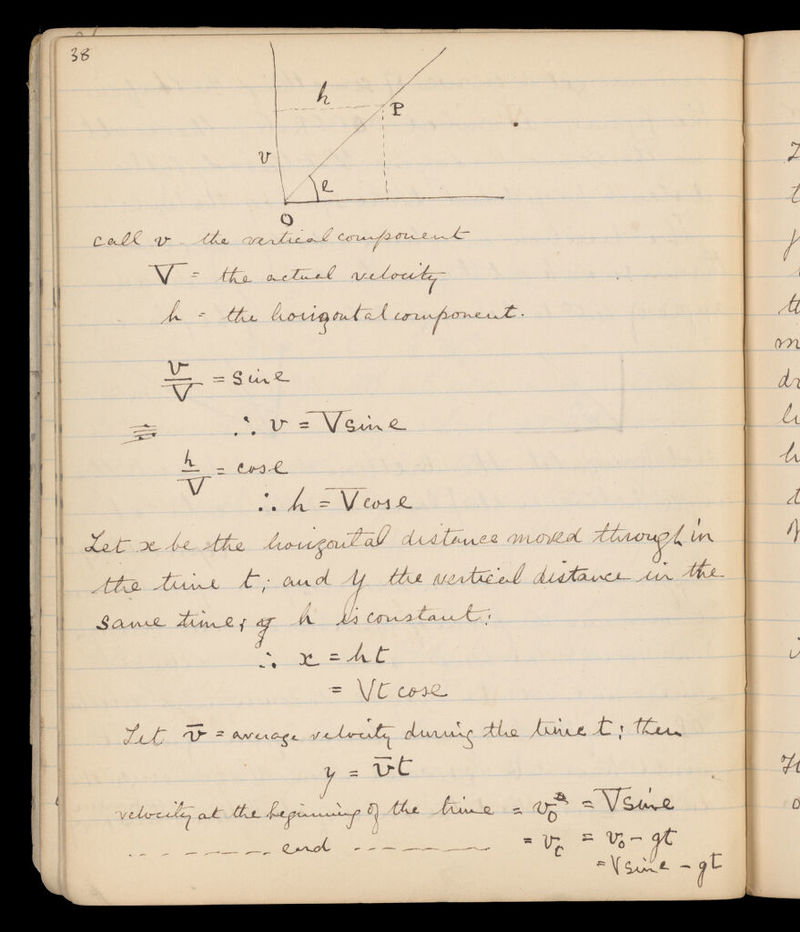 38
h
P
v
e
O
call v - the vertical component
V = the actual velocity
h = the horizontal component.
v/V = sin e
∴ v = V sin e
h/V = cos e
∴ h = V cos e
Let x be the horizontal distance moved through in
the time t; and y the vertical distance in the
same time; h is constant;
∴ x = ht
= Vt cos e
Let v̄ = average velocity during the time t; then
y = v̄t
velocity at the beginning of the time = v₀ = V sin e
- - - - - - - end - - - - - - - = v = v₀ - gt
= V sin e - gt